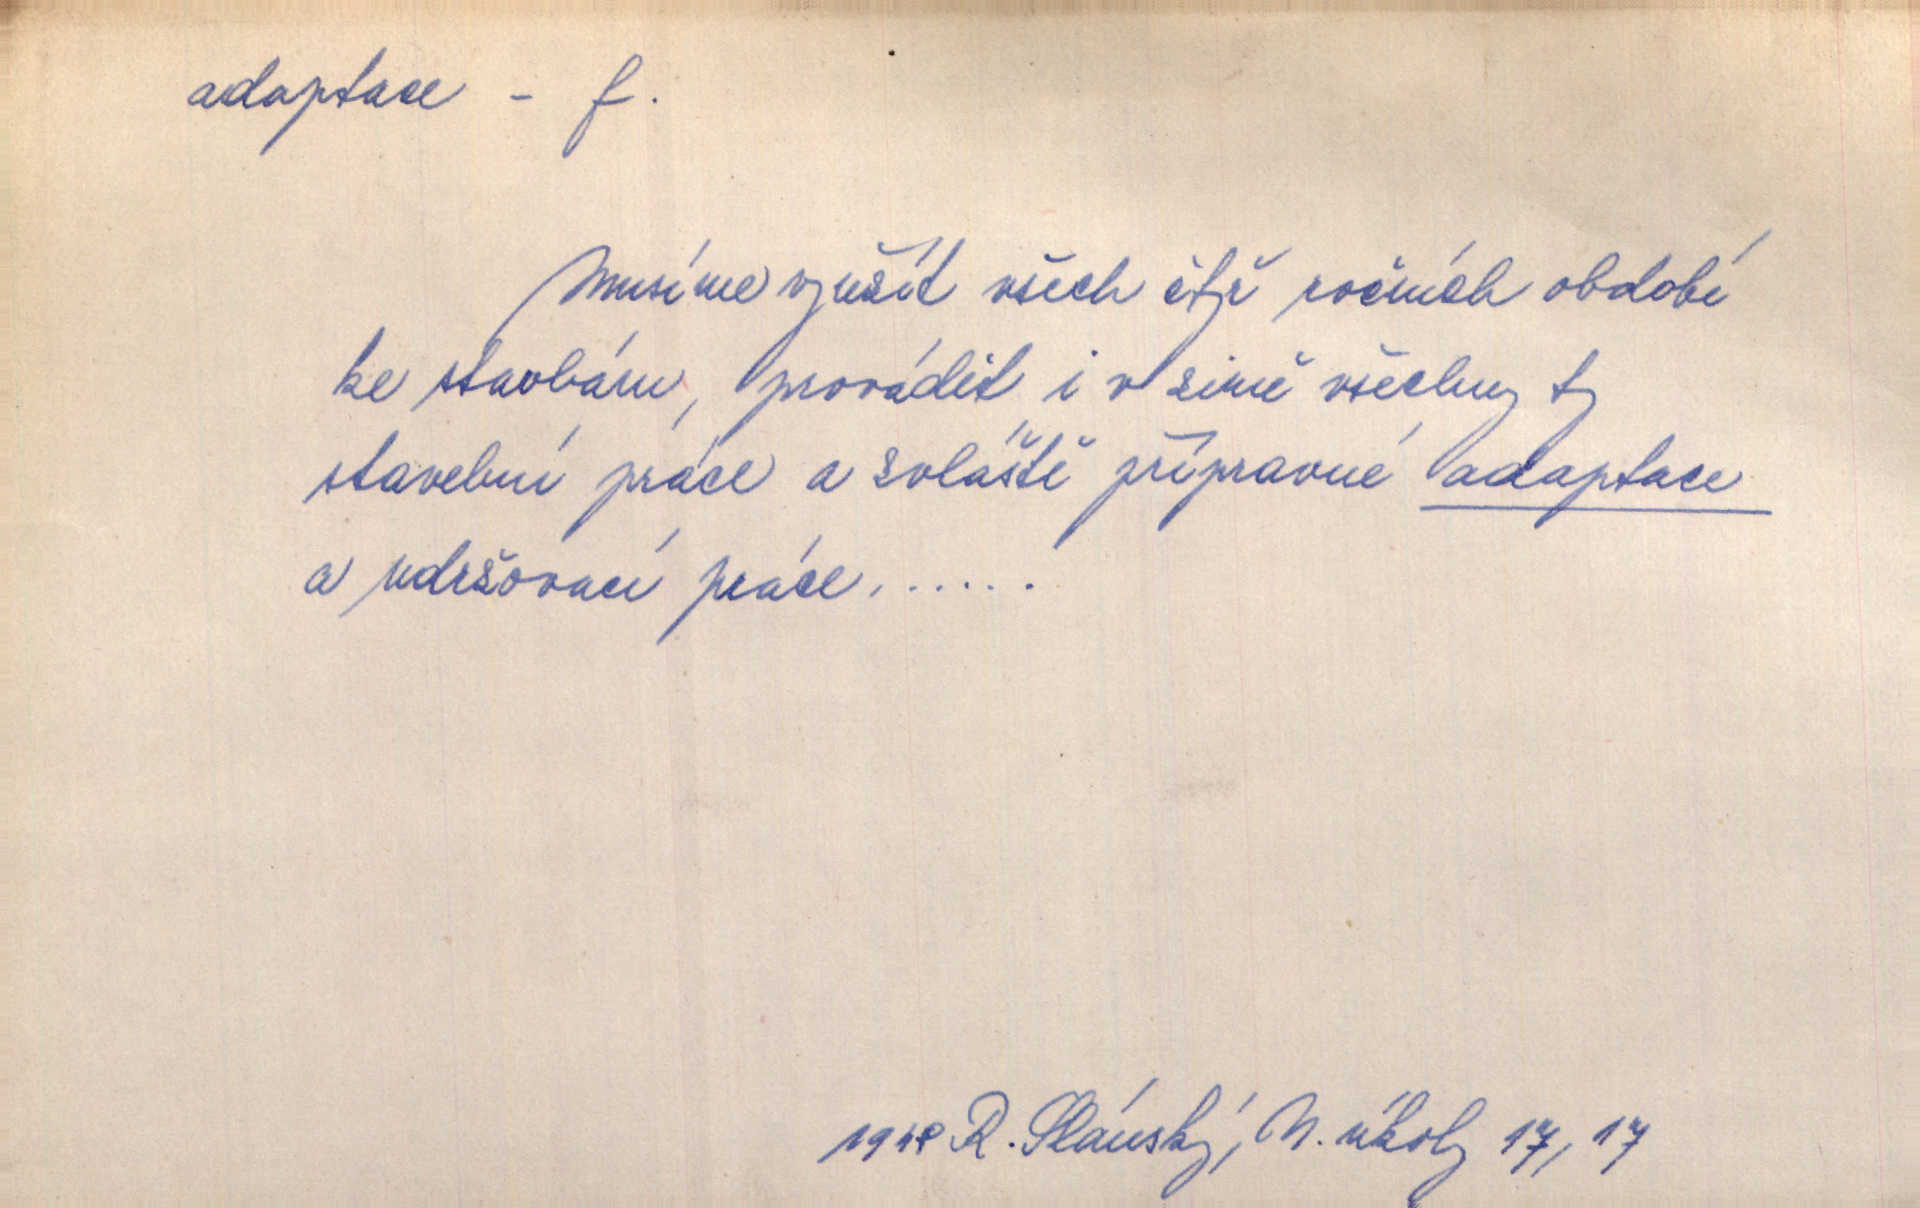 adaptace - f.
Musíme využít všech čtyř ročních období
ke stavbám, provádět i v zimě všechny ty
stavební práce a zvláště přípravné adaptace
a udržovací práce......
1948 R. Slánský, N. úkoly 17, 17